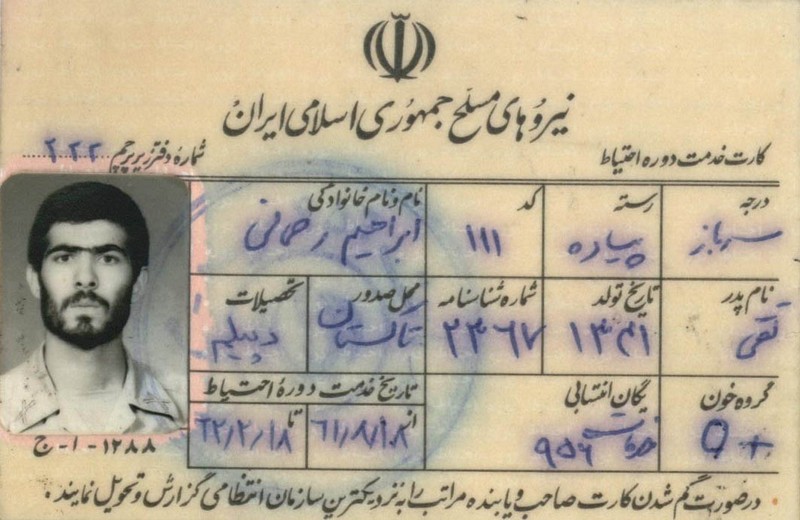 نیروهای مسلح جمهوری اسلامی ایران
کارت خدمت دوره احتیاط
شماره دفتر زیر پرچم ۲۲۲
درجه
سرباز
رسته
پیاده
کد
۱۱۱
نام و نام خانوادگی
ابراهیم رحمانی
نام پدر
تقی
تاریخ تولد
۱۳۴۱
شماره شناسنامه
۲۳۶۷
محل صدور
تاکستان
تحصیلات
دیپلم
گروه خون
O +
یگان انتسابی
۹۵۶
تاریخ خدمت دوره احتیاط
از ۶۱/۸/۱۸
تا ۶۲/۲/۱۸
۱۲۸۸ - ا - ج
درصورت گم شدن کارت صاحب و یابنده مراتب را به نزدیکترین سازمان انتظامی گزارش و تحویل نمایند.